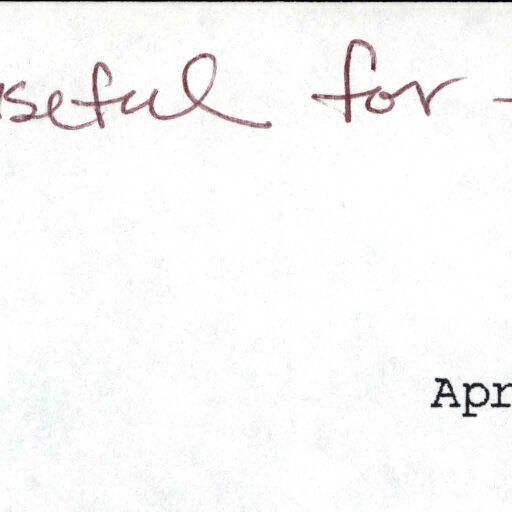 useful for
Apr